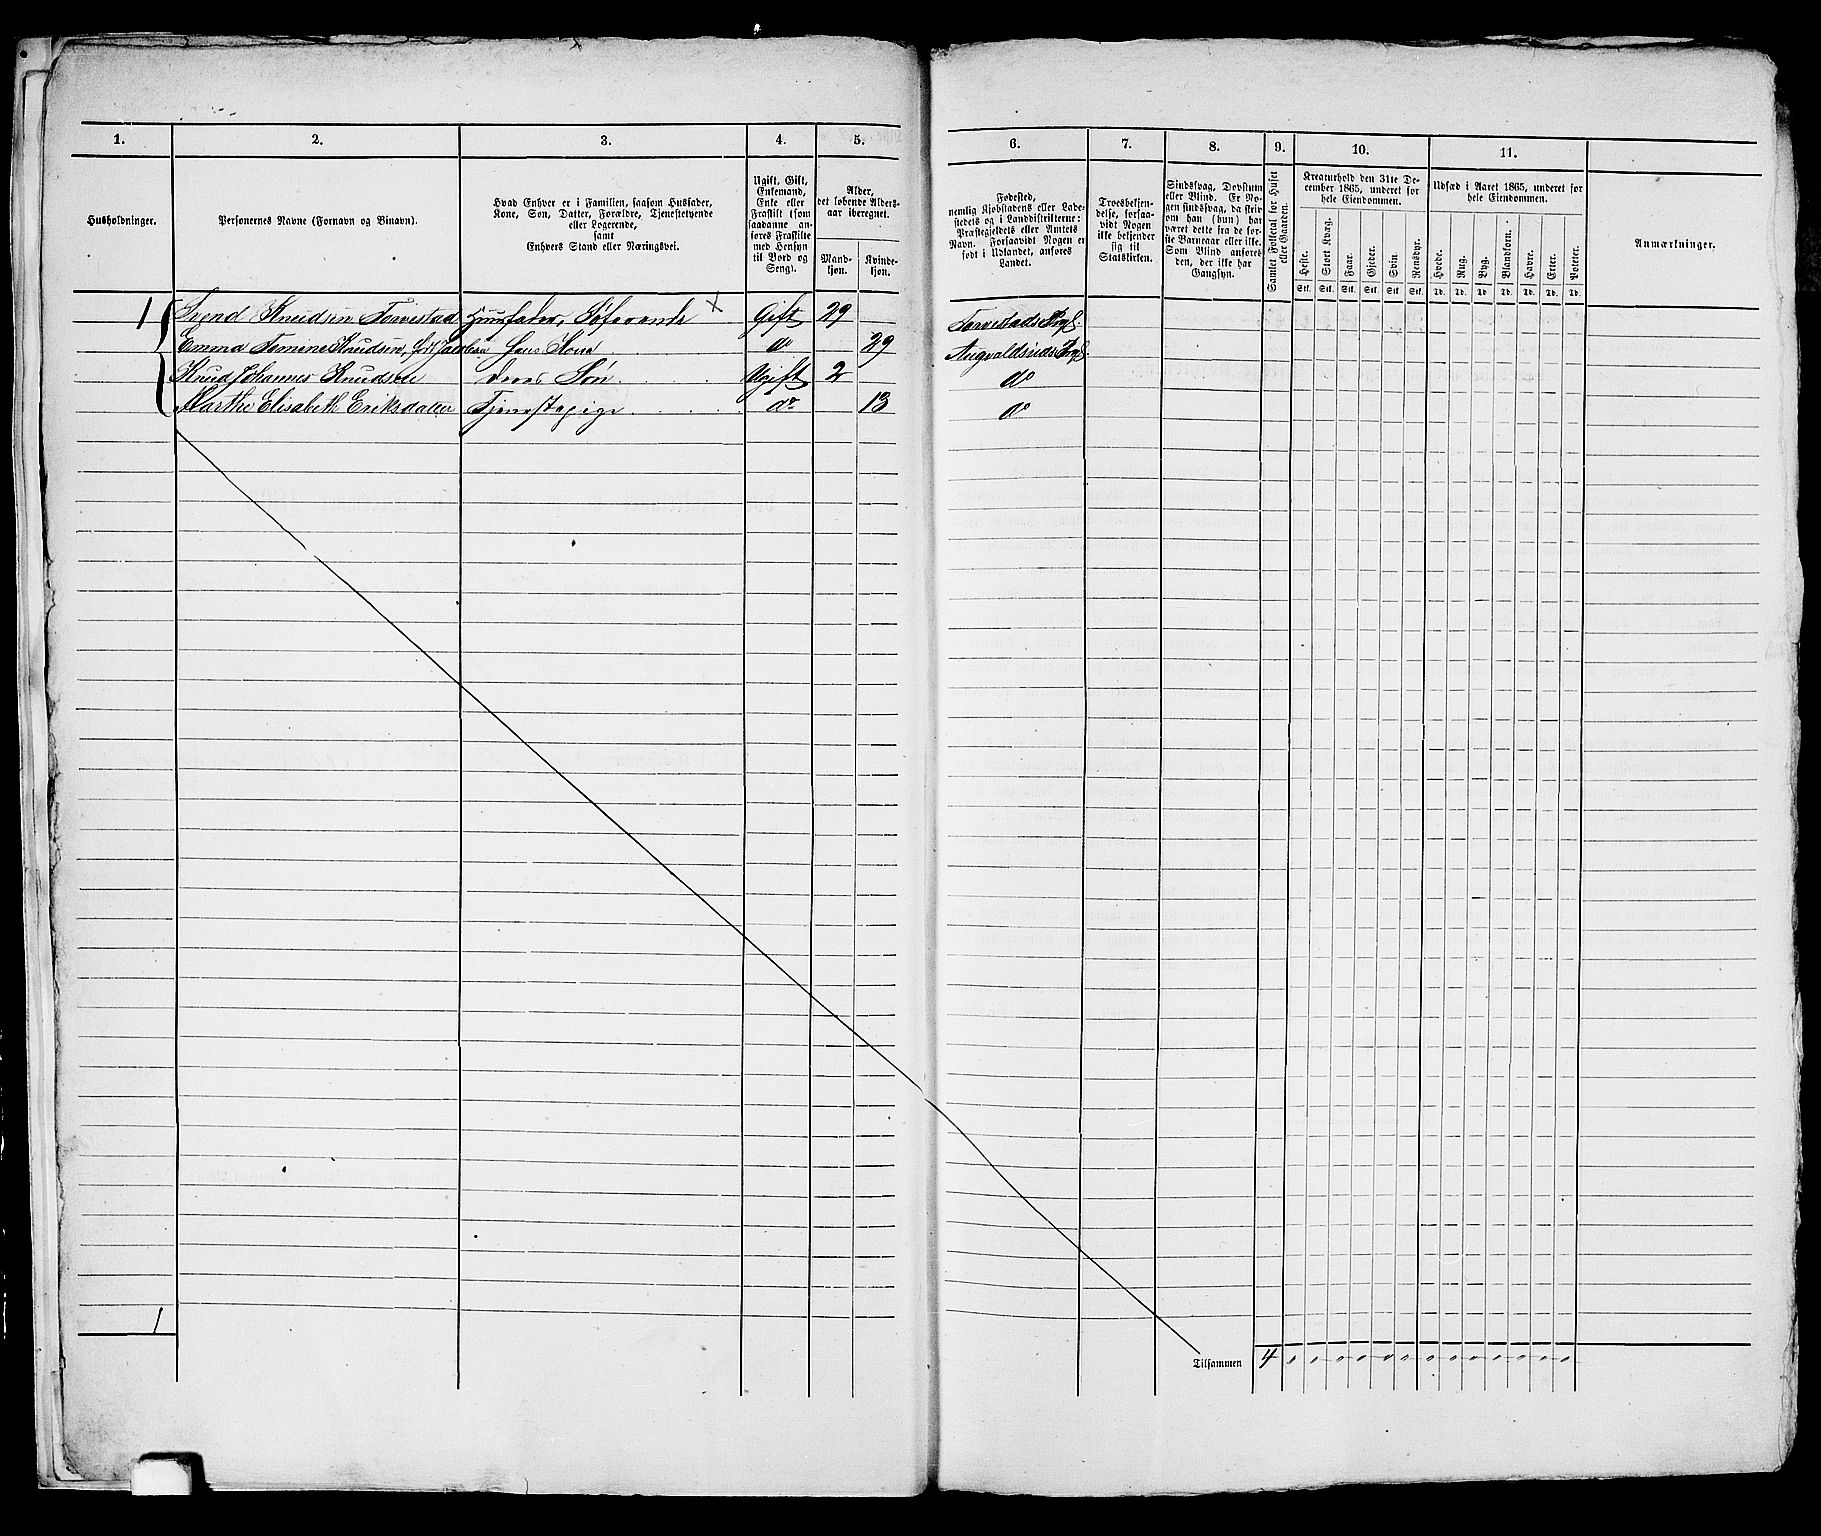 1. 2. 3. 4. 5. 6. 7. 8. 9. 10. 11.
Husholdninger.
Personernes Navne (Fornavn og Binavn).
Hvad Enhver er i Familien, saasom Husfader,
Kone, Søn, Datter, Forældre, Tjenestetyende
eller Logerende,
samt
Enhvers Stand eller Næringsvei.
Ugift, Gift,
Enkemand,
Enke eller
Fraskilt (som
saadanne an-
føres Fraskilte
med Hensyn
til Bord og
Seng).
Alder,
det løbende Alders-
aar iberegnet.
Mand-
kjøn.
Kvinde-
kjøn.
Fødested,
nemlig Kjøbstadens eller Lade-
stedets og i Landdistrikterne:
Præstegjeldets eller Amtets
Navn. Forsaavidt Nogen er
født i Udlandet, anføres
Landet.
Troesbekjen-
delse, forsaa-
vidt Nogen
ikke bekjender
sig til
Statskirken.
Sindssvag, Døvstum
eller Blind. Er No-
gen sindssvag, da skriv
om han (hun) har
været dette fra de før-
ste Barneaar eller ikke.
Som Blind anføres
den, der ikke har
Gangsyn.
Samlet Folketal for Huset
eller Gaarden.
Kreaturhold den 31te De-
cember 1865, underet for
hele Eiendommen.
Heste. Stort Kvæg. Faar. Gjeder. Svin. Rensdyr.
Stk. Stk. Stk. Stk. Stk. Stk.
Udsæd i Aaret 1865, underet for
hele Eiendommen.
Hvede. Rug. Byg. Blandkorn. Havre. Erter. Poteter.
Td. Td. Td. Td. Td. Td. Td.
Anmærkninger.
1 Svend Knudsen Torvestad Huusfader, Søfarende × Gift 29 Torvestads Prgl.
Emma Tomine Knudsen, født Jacobsen hans Kone do 29 Augvaldsnæs Prgl.
Knud Johannes Knudsen deres Søn Ugift 2 do
Marthe Elisabeth Eriksdatter Tjenestepige do 13 do
1
Tilsammen 4 0 0 0 0 0 0 0 0 0 0 0 0 0